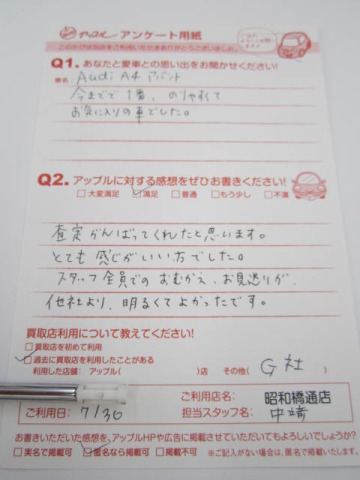 アップル アンケート用紙
このたびは当店をご利用いただきありがとうございました。
Q1. あなたと愛車との思い出をお聞かせください!
車名 Audi A4 アバント
今までで1番、のりやすくて
お気に入りの車でした。
Q2. アップルに対する感想をぜひお書きください!
□大変満足 ☑満足 □普通 □もう少し □不満
査定がんばってくれたと思います。
とても感じがいい方でした。
スタッフ全員でのおむかえ、お見送りが、
他社より、明るくてよかったです。
買取店利用について教えてください!
□買取店を初めて利用
☑過去に買取店を利用したことがある
利用した店舗: アップル( )店 その他( G社 )
ご利用店名: 昭和橋通店
ご利用日: 7/30 担当スタッフ名: 中﨑
お書きいただいた感想を、アップルHPや広告に掲載させていただいてもよろしいでしょうか?
□実名で掲載可 ☑匿名なら掲載可 □掲載不可 ※ご記入がない場合は、匿名で掲載いたします。